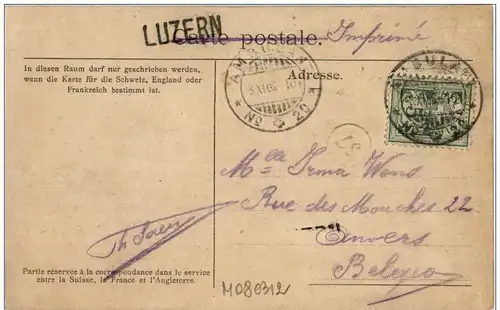 LUZERN
Carte postale. Imprimé
In diesen Raum darf nur geschrieben werden,
wenn die Karte für die Schweiz, England oder
Frankreich bestimmt ist.
Adresse.
AMBULANT
No 20
AMBULANT
No 20
Mlle Irma Wens
Rue des Mouches 22
Anvers
Belgio
Partie réservée à la correspondance dans le service
entre la Suisse, la France et l'Angleterre.
M080312